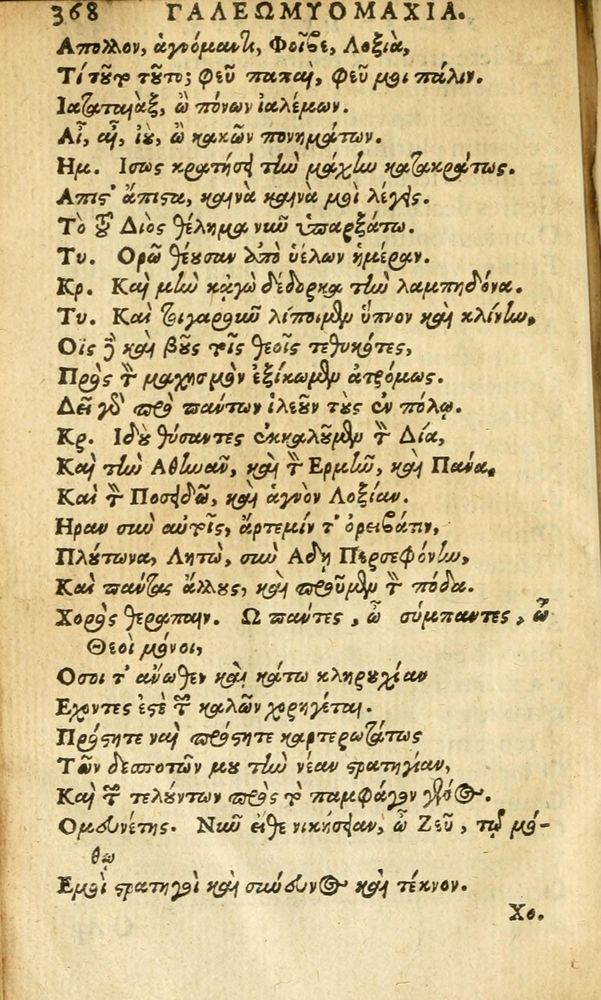 368 ΓΑΛΕΩΜΥΟΜΑΧΙΑ.
Απολλον, ἁγνόμαντι, Φοῖβε, Λοξία,
Τί τοῦτο τοῦτο; φεῦ παπαὶ, φεῦ μοι πάλιν.
Ιατταταιὰξ, ὢ πόνων ἰαλέμων.
Αἲ, αἲ, ἰὺ, ὢ κακῶν πονημάτων.
Ημ. Ισως κρατήσει τὴν μάχην κατακράτως.
Απιστ' ἄπιστα, καινὰ καινὰ μοὶ λέγεις.
Τὸ τοῦ Διὸς θέλημα νοῦ ὑπαρξάτω.
Τυ. Ορῶ θέουσαν ἀπὸ ὑέλων ἡμέραν.
Κρ. Καὶ μὴν κᾀγὼ δέδορκα τὴν λαμπηδόνα.
Τυ. Καὶ τοιγαροῦν λίποιμεν ὕπνον καὶ κλίνην,
Οῒς δὲ καὶ βοῦς τοῖς θεοῖς τεθυκότες,
Πρὸς τὸν μαχησμὸν ἐξίκωμεν ἀτρόμως.
Δεῖ γὰρ πρὸ πάντων ἱλεοῦν τοὺς ἐν πόλῳ.
Κρ. Ιδοὺ θύσαντες ἐκκαλοῦμεν τὸν Δία,
Καὶ τὴν Αθηνᾶν, καὶ τὸν Ερμῆν, καὶ Πᾶνα,
Καὶ τὸν Ποσειδῶ, καὶ ἁγνὸν Λοξίαν.
Ηραν σὺν αὐτοῖς, ἄρτεμίν τ' ὀρειβάτιν,
Πλούτωνα, Λητὼ, σὺν Αδῃ Περσεφόνην,
Καὶ πάντας ἄλλους, καὶ προῦμεν τὸν πόδα.
Χορὸς θεραπαιν. Ω πάντες, ὦ σύμπαντες, ὦ
Θεοὶ μόνοι,
Οσοι τ' ἄνωθεν καὶ κάτω κληρουχίαν
Εχοντες ἐστὲ τῶν καλῶν χορηγέται.
Πρόσητε ναὶ πρόσητε καρτερωτάτως
Τῶν δεσποτῶν μου τὴν νέαν στρατηγίαν,
Καὶ τῶν τελούντων πρὸς τὸ παμφάγον γένος.
Ομευνέτης. Νοῦ εἴθε νικήσειαν, ὦ Ζεῦ, τῷ μό-
θῳ
Εμοὶ στρατηγοὶ καὶ σύνευνος καὶ τέκνον.
Χο.